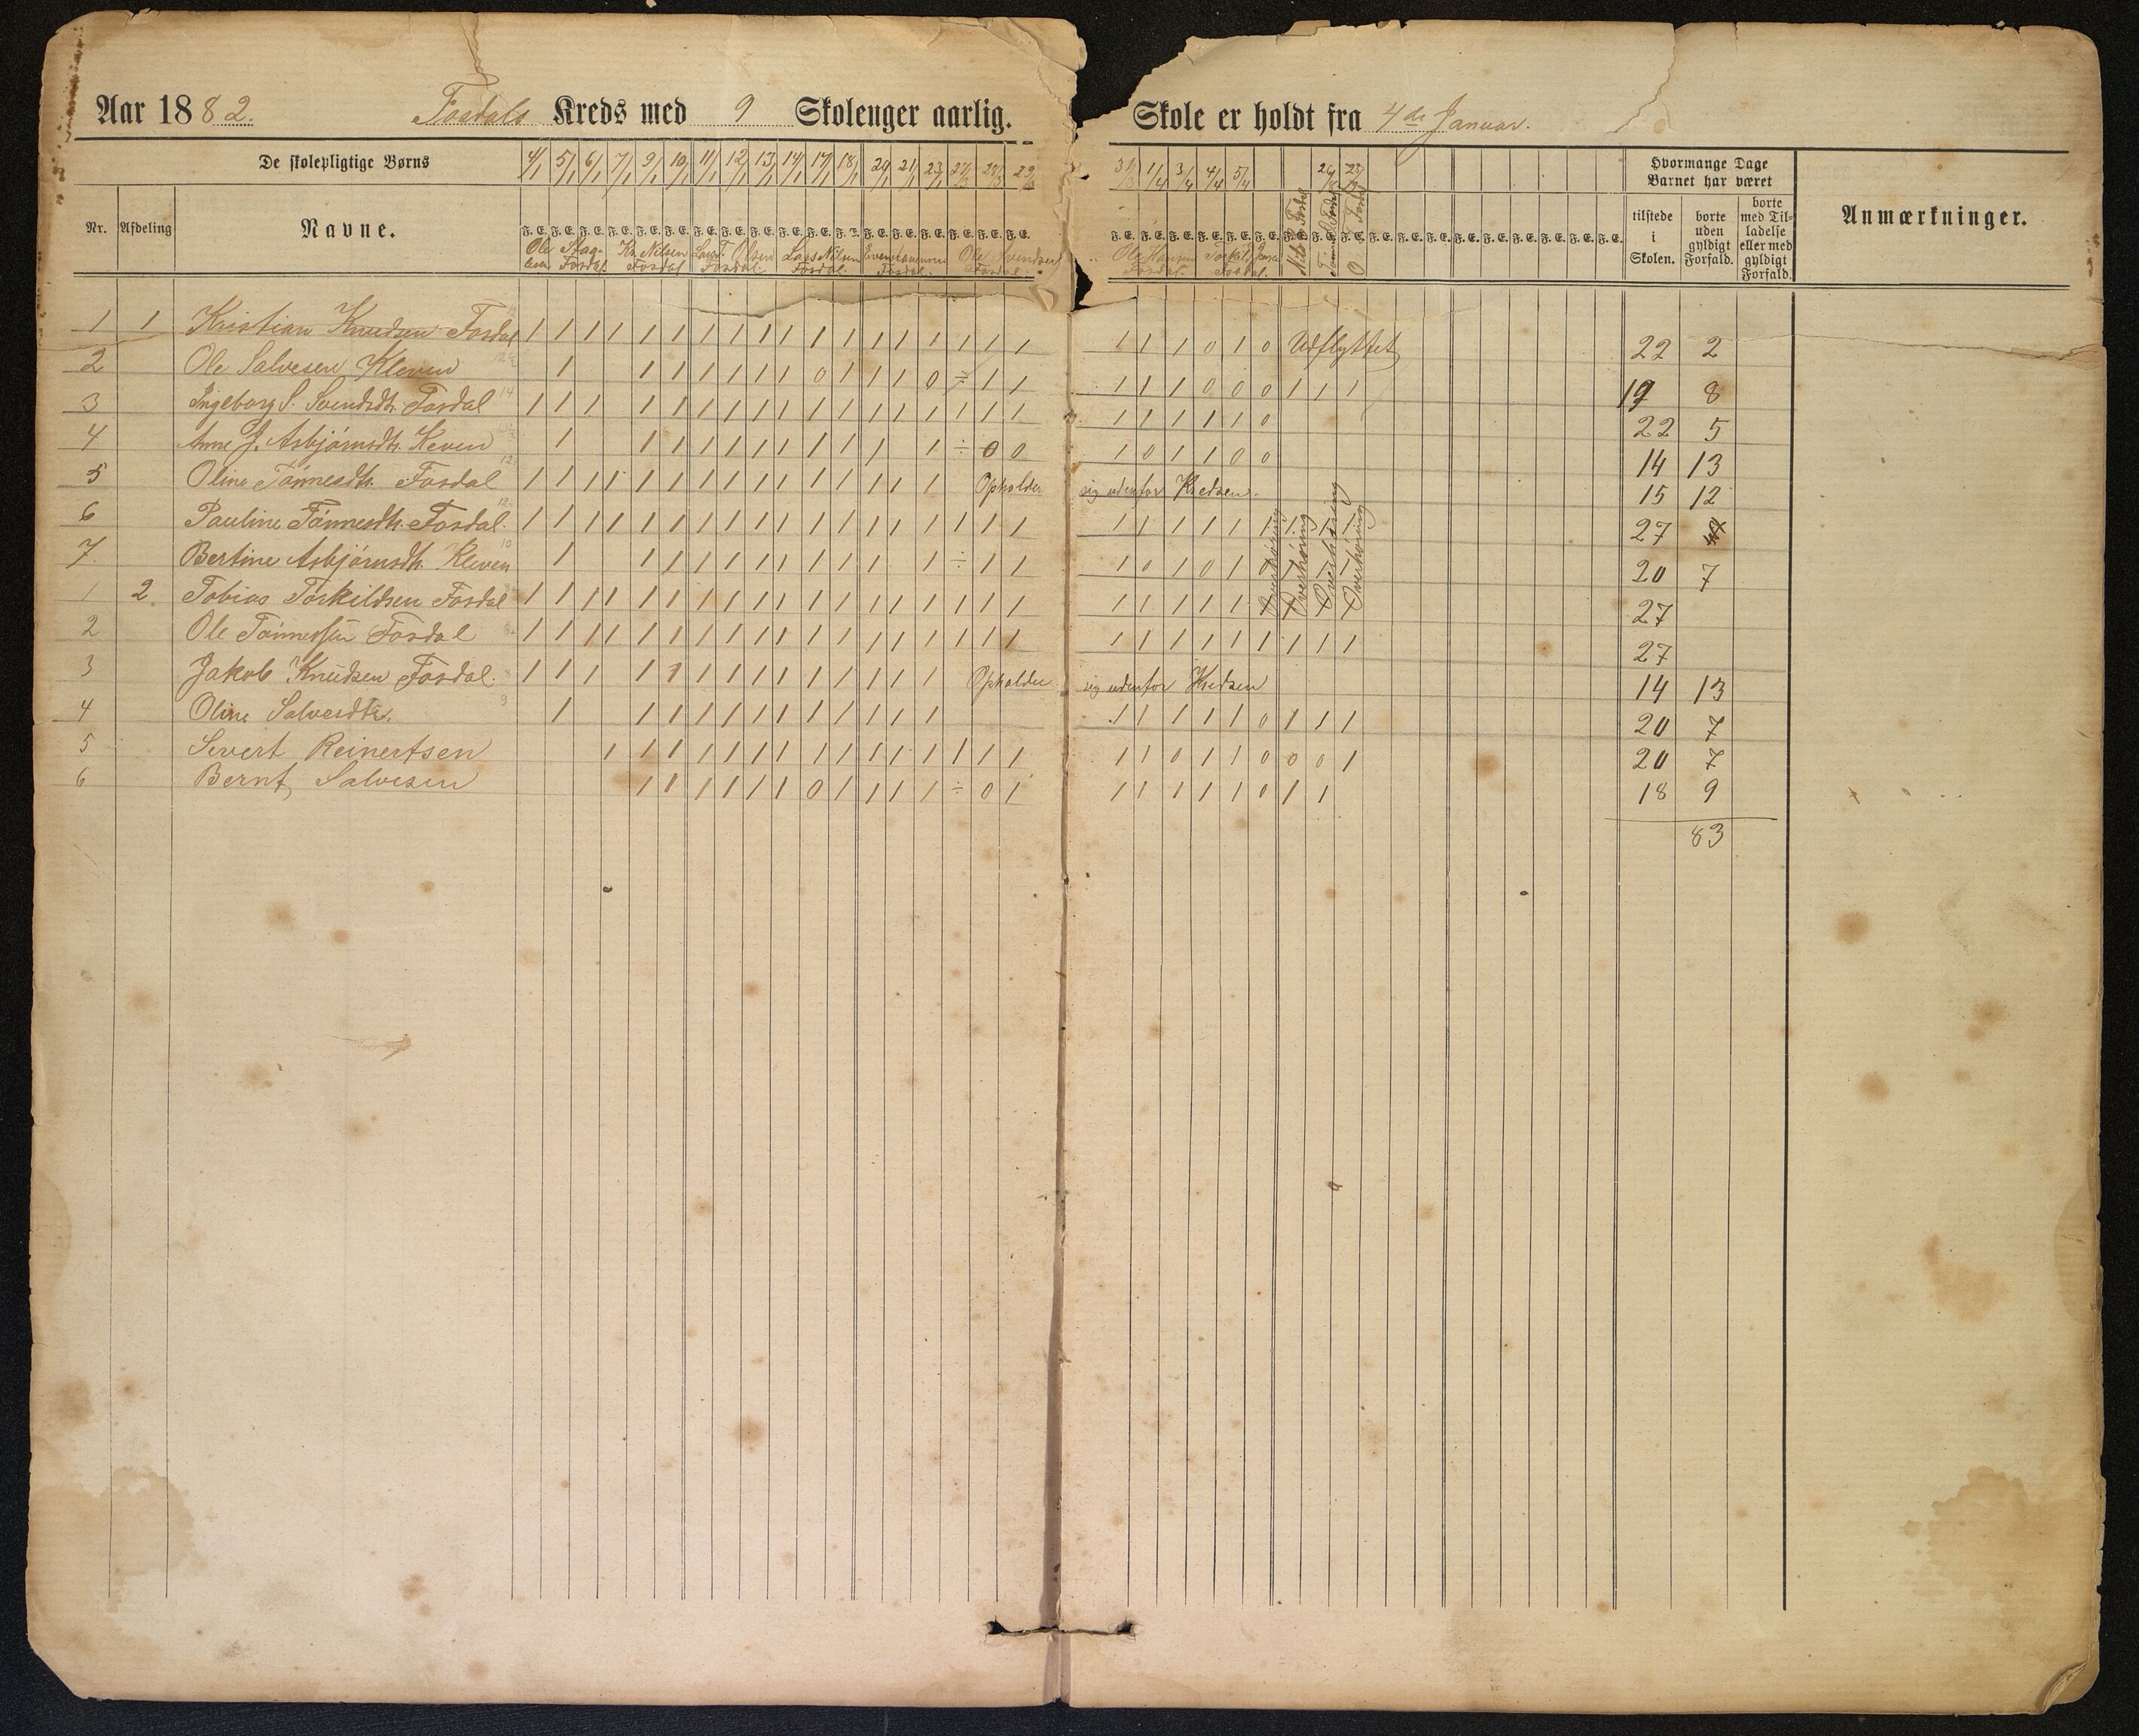 Aar 1882. Fosdals Kreds med 9 Skoleuger aarlig. Skole er holdt fra 4de Januar.
De skolepligtige Børns 4/1 5/1 6/1 7/1 9/1 10/1 11/1 12/1 13/1 14/1 17/1 18/1 20/1 21/1 23/1 1/4 3/4 4/4 5/4 Hvormange Dage Barnet har været
Nr. Afdeling Navne. F. E. F. E. F. E. F. E. F. E. F. E. F. E. F. E. F. E. F. E. F. E. F. E. F. E. F. E. F. E. F. E. F. E. F. E. F. E. F. E. F. E. F. E. F. E. F. E. F. E. F. E. F. E. F. E. F. E. F. E. F. E. F. E. F. E. F. E. F. E. F. E. tilstede i Skolen. borte uden gyldigt Forfald. borte med Tilladelse eller med gyldigt Forfald. Anmærkninger.
Kn Nilsen Fosdal Fosdal Lars Nilsen Fosdal Fosdal Ole Svendsen Fosdal Ole Hansen Fosdal Fosdal
1 1 Kristian Knudsen Fosdal 1 1 1 1 1 1 1 1 1 1 1 1 1 1 1 1 1 1 1 1 1 0 1 0 Udflyttet 22 2
2 Ole Salvesen Kleven 1 1 1 1 1 1 1 0 1 1 1 0 ÷ 1 1 1 1 1 0 0 0 1 1 1 19 8
3 Ingeborg S. Svendsdtr. Fosdal 1 1 1 1 1 1 1 1 1 1 1 1 1 1 1 1 1 1 1 1 1 1 0 22 5
4 Anne J. Asbjørnsdtr. Keven 1 1 1 1 1 1 1 1 1 1 1 ÷ 0 0 1 0 1 1 0 0 14 13
5 Oline Tønnesdtr. Fosdal 1 1 1 1 1 1 1 1 1 1 1 1 1 1 1 Opholder sig udenfor Kredsen. 15 12
6 Pauline Tønnesdtr. Fosdal. 1 1 1 1 1 1 1 1 1 1 1 1 1 1 1 1 1 1 1 1 1 1 1 1 1 1 1 27
7. Bertine Asbjørnsdtr. Kleven 10 1 1 1 1 1 1 1 1 1 1 1 ÷ 1 1 1 0 1 0 1 20 7
1 2 Tobias Torkildsen Fosdal 1 1 1 1 1 1 1 1 1 1 1 1 1 1 1 1 1 1 1 1 1 1 1 Overhøring Overhøring Overhøring Overhøring 27
2 Ole Tønnessen Fosdal 1 1 1 1 1 1 1 1 1 1 1 1 1 1 1 1 1 1 1 1 1 1 1 1 1 1 1 27
3 Jakob Knudsen Fosdal. 1 1 1 1 1 1 1 1 1 1 1 1 1 1 Opholder sig udenfor Kredsen 14 13
4 Oline Salvesdtr. 9 1 1 1 1 1 1 1 1 1 1 1 1 1 1 1 1 1 0 1 1 1 20 7
5 Severt Reinertsen 1 1 1 1 1 1 1 1 1 1 1 1 1 1 1 1 1 0 1 1 0 0 0 1 20 7
6 Bernt Salvesen 1 1 1 1 1 1 0 1 1 1 1 ÷ 0 1 1 1 1 1 1 0 1 1 18 9
83